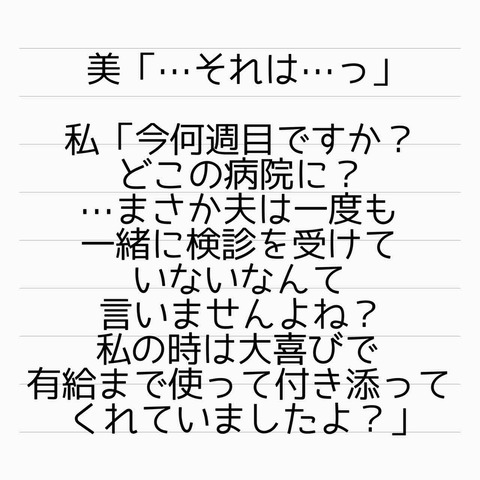 美「…それは…っ」
私「今何週目ですか？
どこの病院に？
…まさか夫は一度も
一緒に検診を受けて
いないなんて
言いませんよね？
私の時は大喜びで
有給まで使って付き添って
くれていましたよ？」